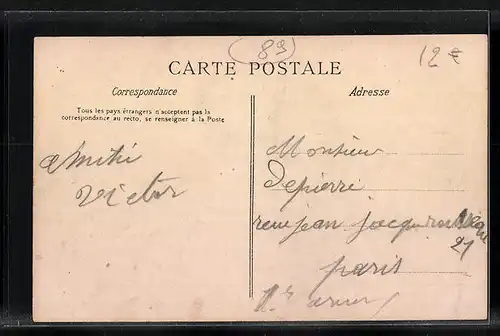 (89)
12€
CARTE POSTALE
Correspondance
Adresse
Tous les pays étrangers n'acceptent pas la
correspondance au recto, se renseigner à la Poste
amitié
victor
Monsieur
Depierre
rue jean jacques
21
paris